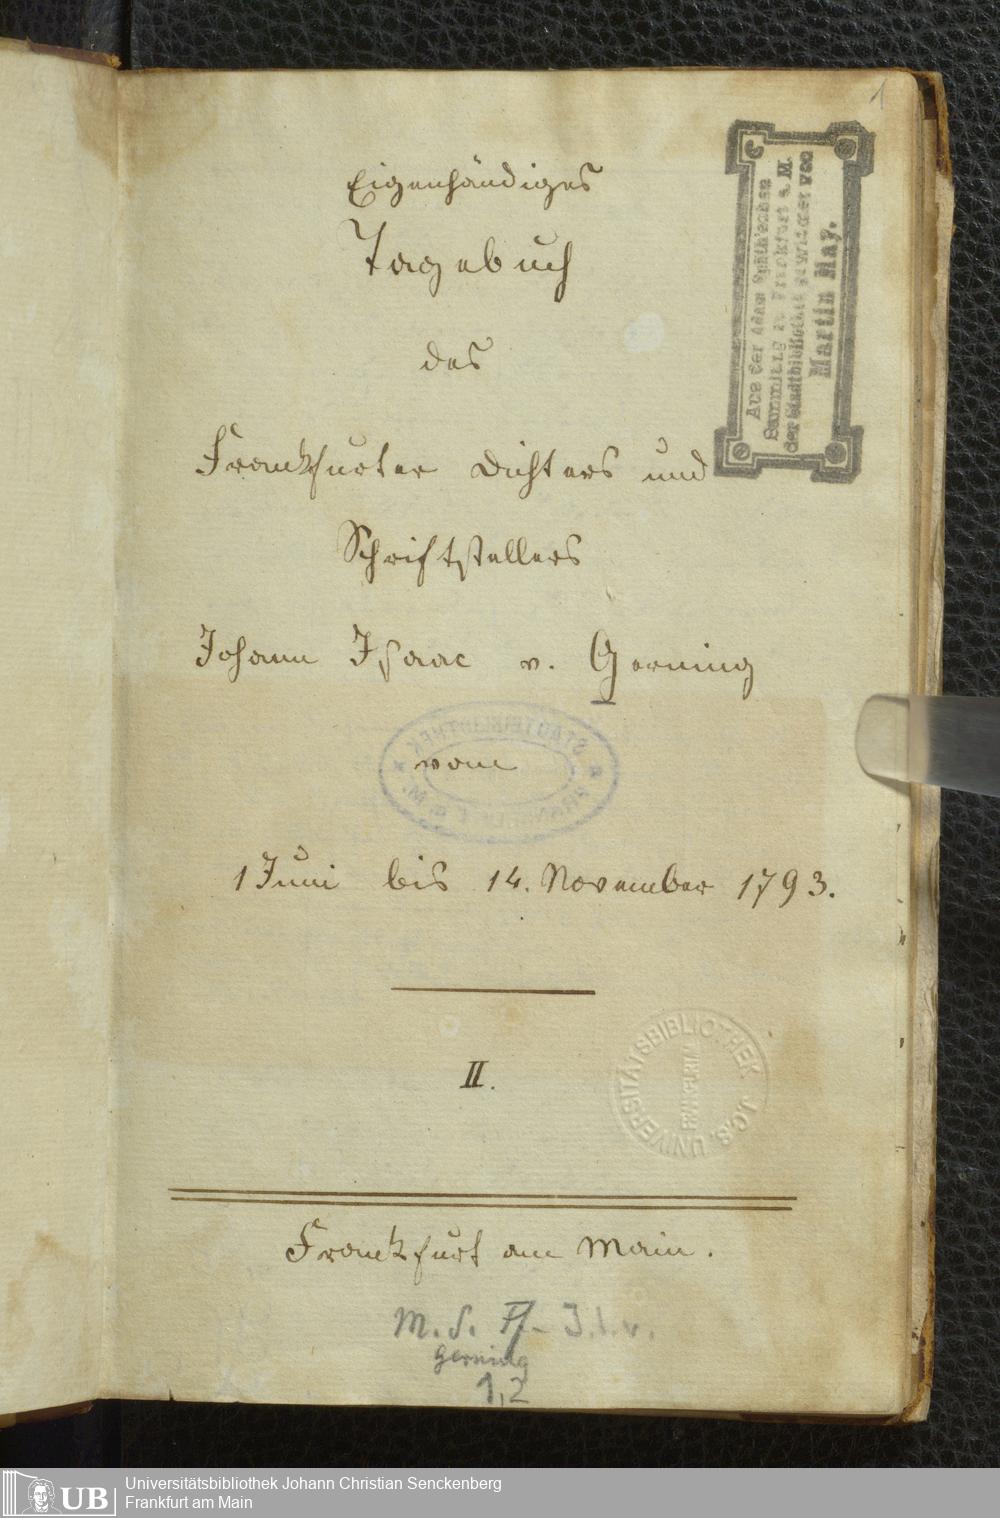 1
Eigenhändiges
Tagebuch
des
Frankfurter Dichters und
Schriftstellers
Johann Isaac v. Gerning
vom
1 Juni bis 14. November 1793.
II.
Frankfurt am Main.
M. S. Ff. J. I. v.
Gerning
1,2
Aus der Adam
Sammlung zu Frankfurt a. M.
der Stadtbibliothek gewidmet von
Martin May.
STADTBIBLIOTHEK
UNIVERSITÄTSBIBLIOTHEK J.C.S.
UB
Universitätsbibliothek Johann Christian Senckenberg
Frankfurt am Main